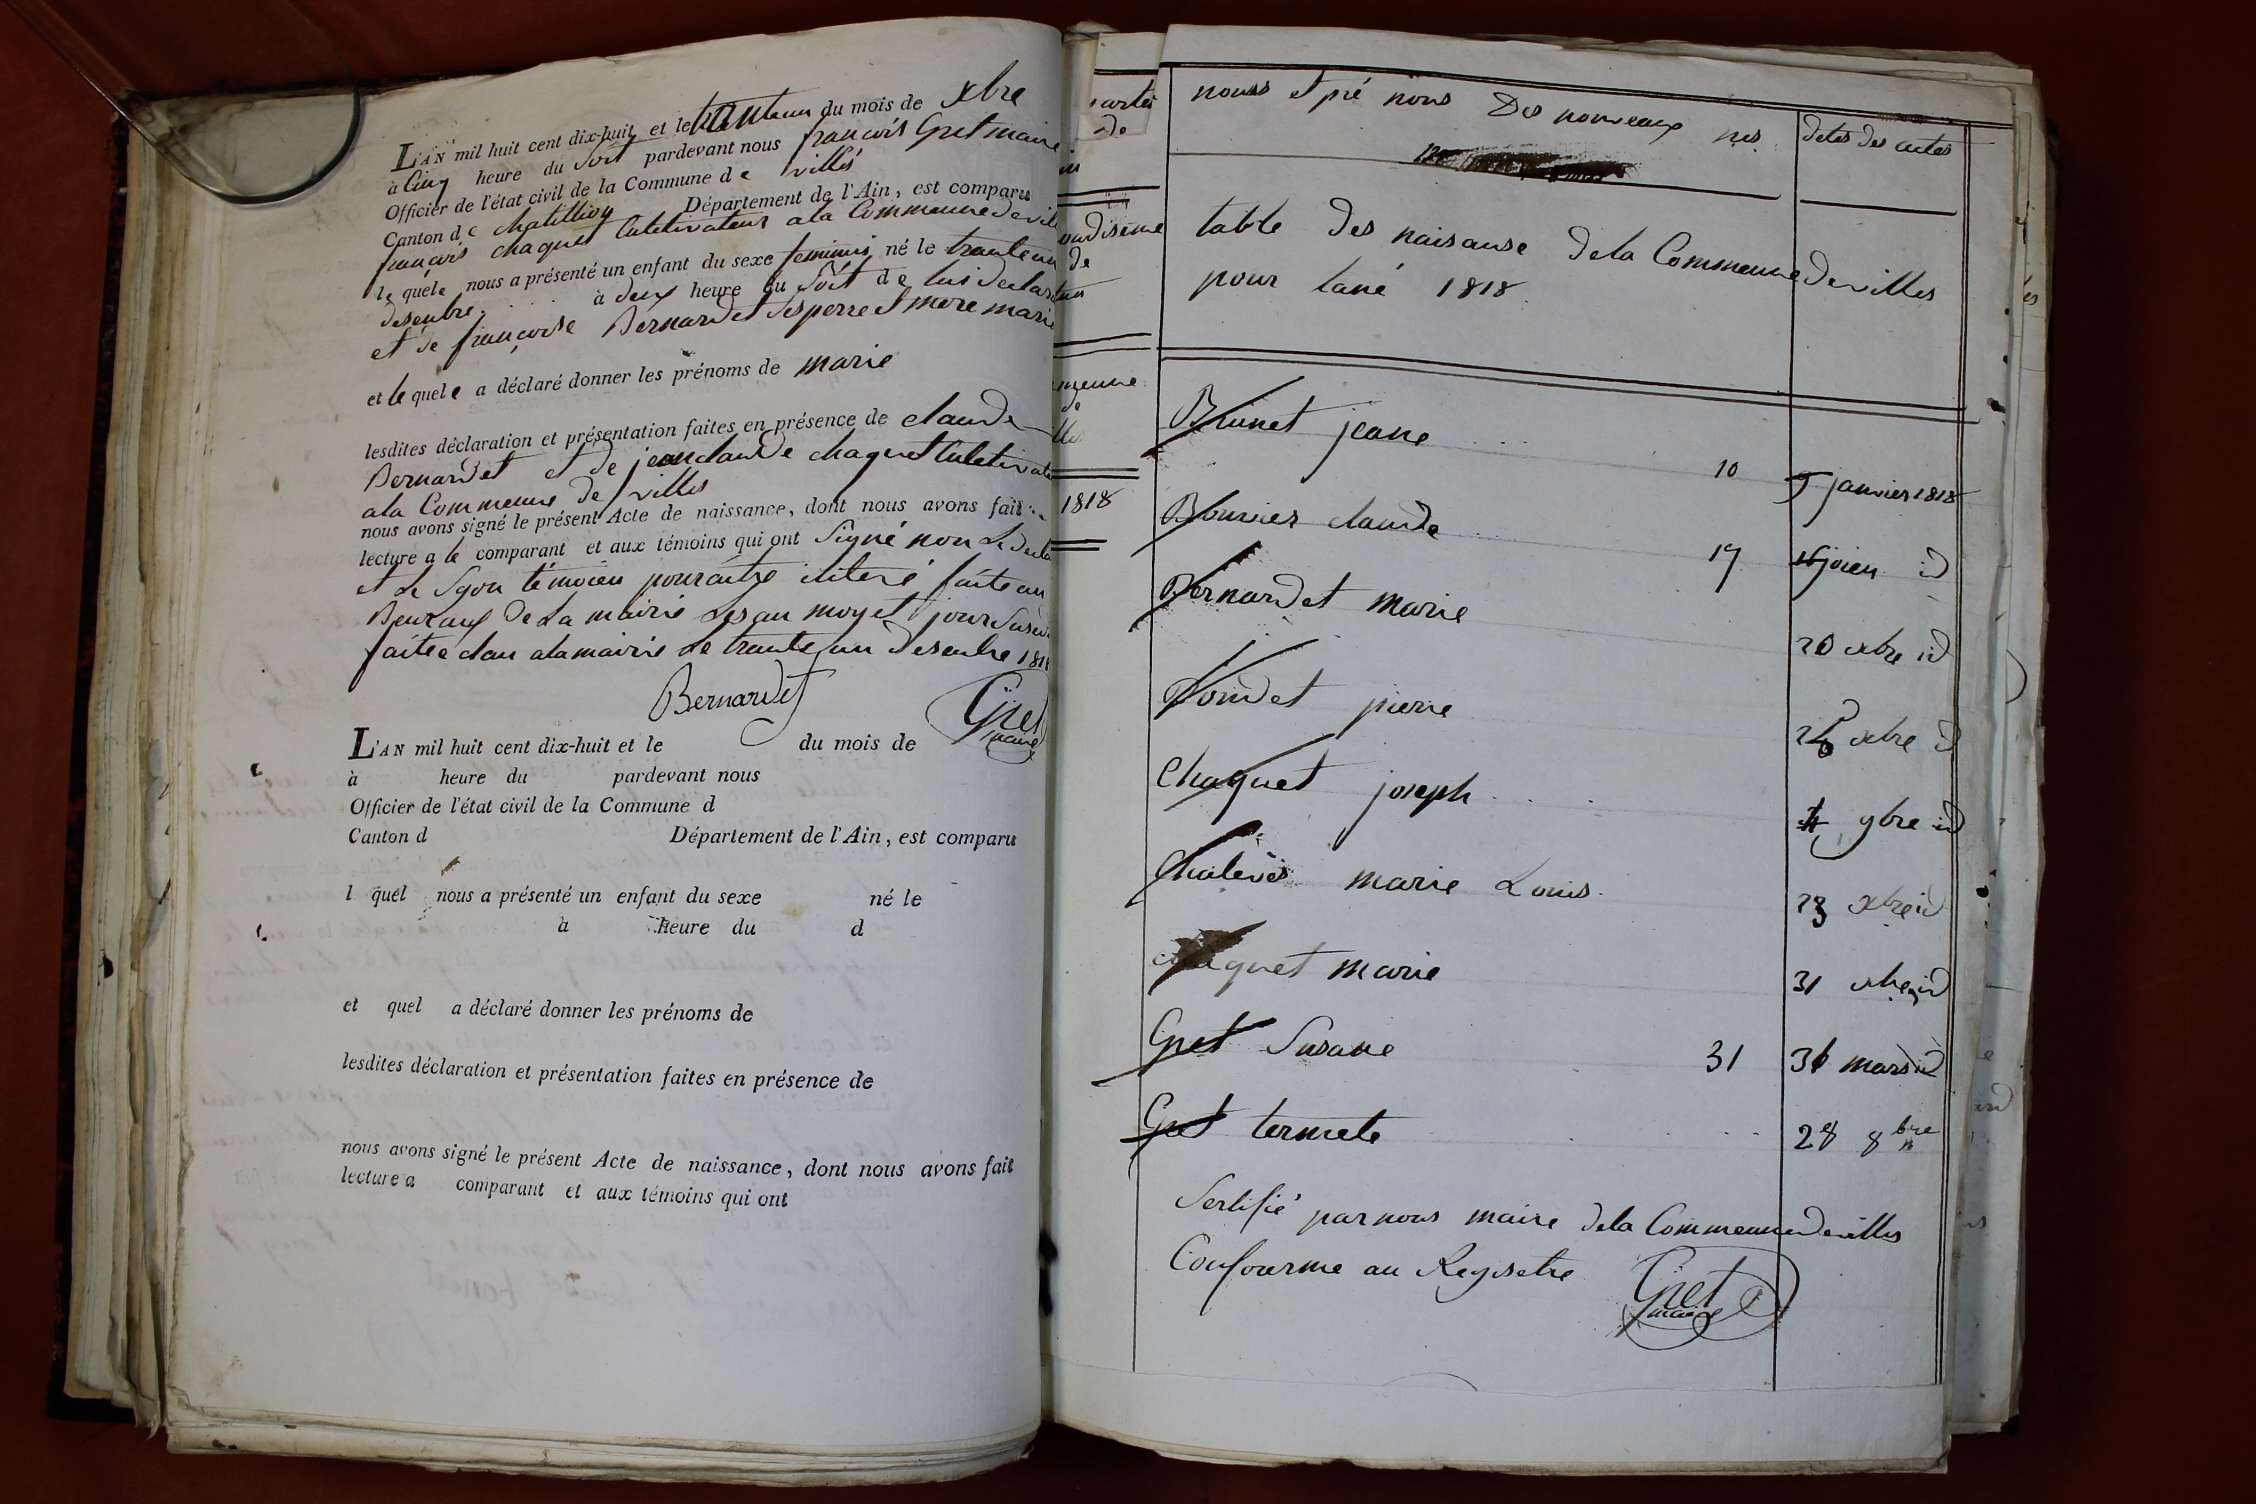 L'AN mil huit cent dix-huit et le tranteun du mois de xbre
à Cinq heure du Soit pardevant nous francois Gret maire
Officier de l'état civil de la Commune de villes
Canton de chatillion Département de l'Ain, est comparu
francois chaquet Culetivateur a la Commeune de vil
le quele nous a présenté un enfant du sexe feminis né le trante un
desenbre à deux heure du Soit de lui declar
et de francoise Bernardet ses perre et mere marie
et le quele a déclaré donner les prénoms de marie
lesdites déclaration et présentation faites en présence de claude
Bernardet et de jean claude chaquet Culetivate
a la Commeune de villes
nous avons signé le présent Acte de naissance, dont nous avons fait
lecture a le comparant et aux témoins qui ont Signé non Le decla
et Le Sgon témoien pouraitre iliteré faite au
Beuraux de La mairie Les an moy et jour Susdi
faite e clau a la mairie Le trante un Desenbre 181
Bernardet
Gret
maire
L'AN mil huit cent dix-huit et le du mois de
à heure du pardevant nous
Officier de l'état civil de la Commune d
Canton d Département de l'Ain, est comparu
l quel nous a présenté un enfant du sexe né le
à heure du d
et quel a déclaré donner les prénoms de
lesdites déclaration et présentation faites en présence de
nous avons signé le présent Acte de naissance, dont nous avons fait
lecture a comparant et aux témoins qui ont
de
1818
noms et pré noms Des nouveaux nes dates des actes
table des naisanse de la Commeune de villes
pour lané 1818
Brunet jeane 10 9 janvier 1818
Bouvier claude 17 join id
Bernardet marie 20 xbre id
Pondet pierre xbre id
Chaquet joseph 9bre id
Chalevés marie Louis 23 xbre id
chaquet marie 31 xbre id
Gret Susane 31 31 mars id
Gret ternete 28 8bre
Sertifié par nous maire de la Commeune de villes
Confourme au Registre
Gret
maire